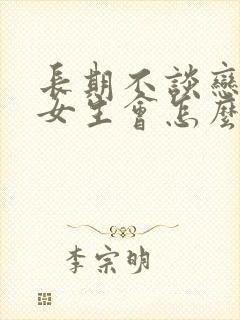 長期不談戀
女生會怎麼
李宗明